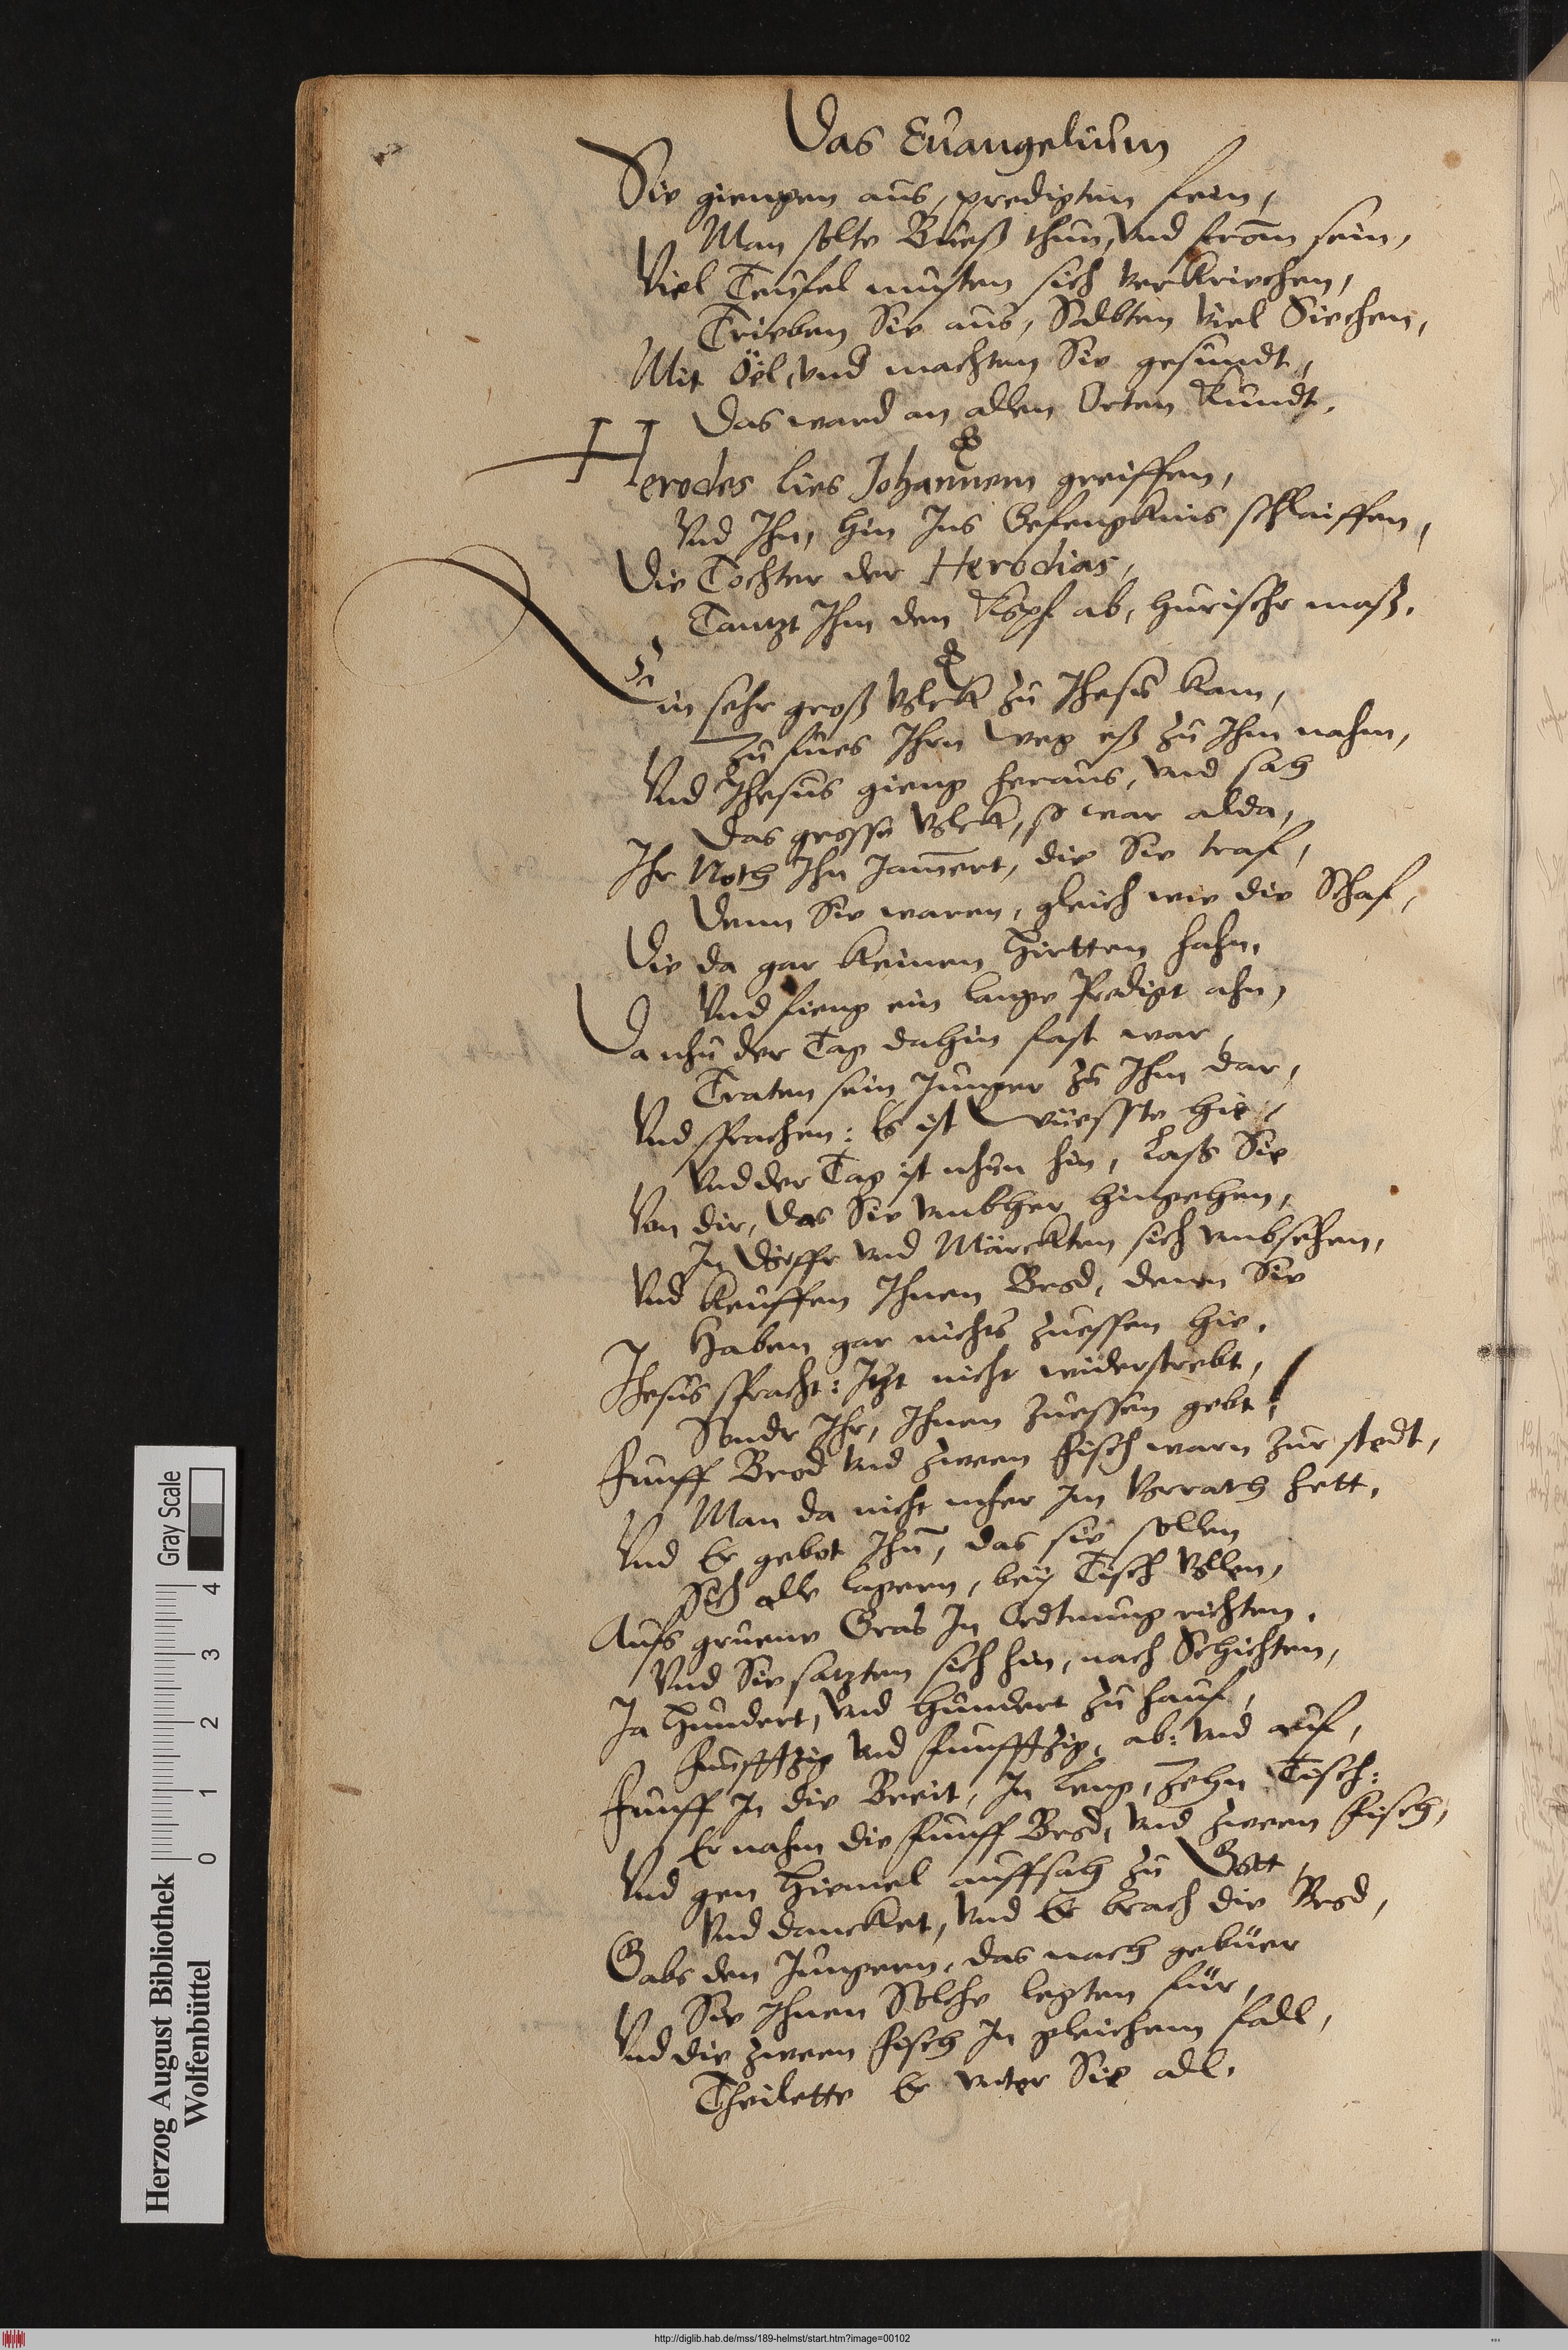 Das Euangelium
Sie giengen aus, predigten fein,
Man solte Buess thun, vnd from̄ sein,
Viel Teufel musten sich verkriechen,
Trieben Sie aus, Salbten viel Siechen,
Mit Öel, vnd machten Sie gesundt,
Das ward an allen Orten Kundt.
Herodes lies Johannem greiffen,
Vnd Ihn, hin Ins Gefengknis schlaiffen,
Die Tochter der Herodias,
Tantzt Ihm den Kopf ab, hurischr mass.
Ein sehr gross Volck zu Jhesu kam,
Zu fues Ihrn weg ess zu Ihm nahm,
Vnd Jhesus gieng heraus, vnd sah
Das grosse Volck, so war alda,
Ihr Noth Ihn Jam̄ert, die Sie traf,
Denn Sie waren, gleich wie die Schaf,
Die da gar keinen Hirtten hahn.
Vnd fieng ein lange Predigt ahn,
Da nhu der Tag dahin fast war,
Traten sein Junger zu Ihm dar,
Vnd sprachen: Es ist Wuesste hie,
Vnd der Tag ist nhun hin, Lass Sie
Von dir, Das Sie vmbher hingehen,
In Dörffr vnd Märckten sich vmbsehen,
Vnd keuffen Ihnen Brod, denn Sie
Haben gar nichts zuessen hie.
Jhesus spracht: Itzt nicht widerstrebt,
Sondr Ihr, Ihnen zuessen gebt,
Funff Brod vnd zween Fisch warn zur stedt,
Man da nicht mher Im Vorrath hett.
Vnd Er gebot Ihn̄, das sie sollen
Sich alle lagern, bey Tisch Vollen,
Aufs gruene Gras In Ordtnung richten.
Vnd Sie satzten sich hin, nach Schichten,
Ja Hundert, vnd Hundert zu hauf,
Funfftzig vnd Funfftzig, ab: vnd auf,
Funff In die Breit, In Leng, Zehn Tisch:
Er nahm die Funff Brod, vnd zween Fisch,
Vnd gen Hiemel auffsah zu Gott
Vnd dancket, vnd Er brach die Brod,
Gabs den Jungern, das nach gebüer
Sie Ihnen Solche legten für,
Vnd die zween Fisch In gleichem fall,
Theilette Er vnter Sie all.
Herzog August Bibliothek
Wolfenbüttel
Gray Scale
0 1 2 3 4
http://diglib.hab.de/mss/189-helmst/start.htm?image=00102